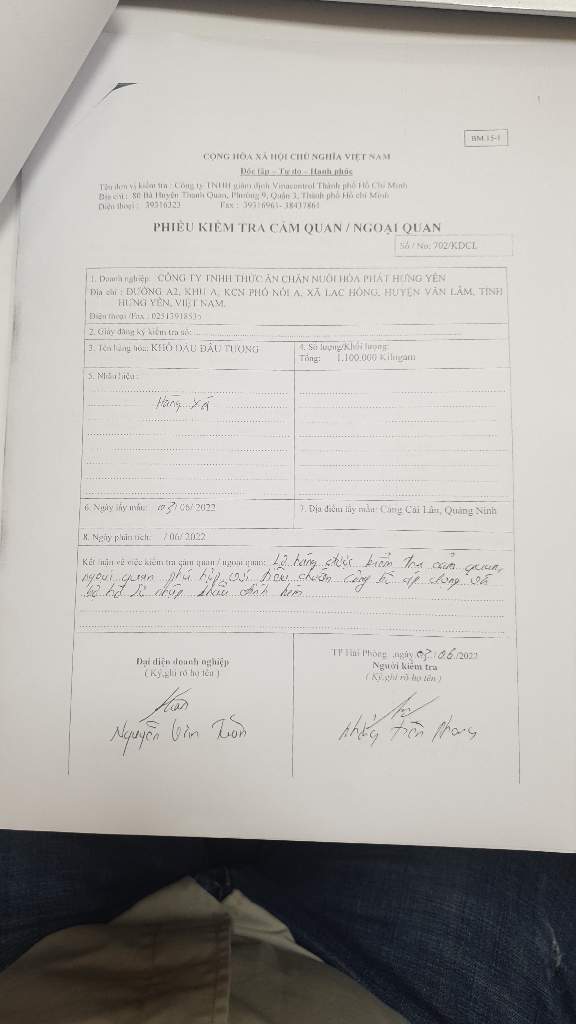 BM.15-1
CỘNG HÒA XÃ HỘI CHỦ NGHĨA VIỆT NAM
Độc lập – Tự do – Hạnh phúc
Tên đơn vị kiểm tra : Công ty TNHH giám định Vinacontrol Thành phố Hồ Chí Minh
Địa chỉ : 80 Bà Huyện Thanh Quan, Phường 9, Quận 3, Thành phố Hồ chí Minh
Điện thoại : 39316323 Fax : 39316961- 38437861
PHIẾU KIỂM TRA CẢM QUAN / NGOẠI QUAN
Số / No: 702/KDCL
1. Doanh nghiệp: CÔNG TY TNHH THỨC ĂN CHĂN NUÔI HÒA PHÁT HƯNG YÊN
Địa chỉ : ĐƯỜNG A2, KHU A, KCN PHỐ NỐI A, XÃ LẠC HỒNG, HUYỆN VĂN LÂM, TỈNH
HƯNG YÊN, VIỆT NAM.
Điện thoại /Fax : 02513918635
2. Giấy đăng ký kiểm tra số:
3. Tên hàng hóa: KHÔ DẦU ĐẬU TƯƠNG
4. Số lượng/Khối lượng:
Tổng: 1.100.000 Kilogam
5. Nhãn hiệu :
Hàng xá
6. Ngày lấy mẫu: 03/ 06/ 2022
7. Địa điểm lấy mẫu: Cảng Cái Lân, Quảng Ninh
8. Ngày phân tích: / 06/ 2022
Kết luận về việc kiểm tra cảm quan / ngoại quan: Lô hàng được kiểm tra cảm quan,
ngoại quan phù hợp với tiêu chuẩn công bố áp dụng và
bộ hồ sơ nhập khẩu đính kèm
Đại diện doanh nghiệp
( Ký,ghi rõ họ tên )
Nguyễn Văn
TP Hải Phòng, ngày 03/ 06/2022
Người kiểm tra
( Ký,ghi rõ họ tên )
Tiến Phong